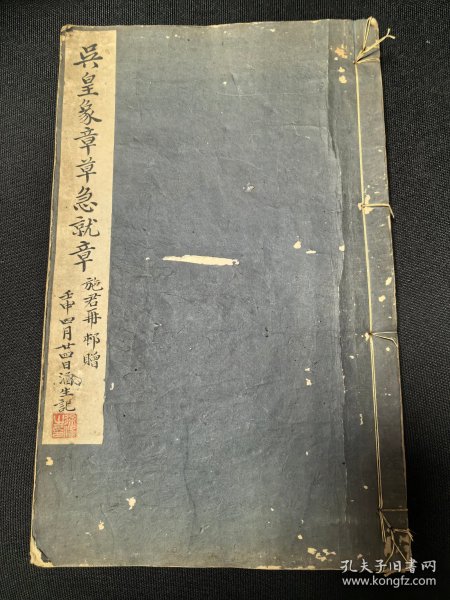 吳皇象章草急就章
施君冊邨贈
壬申四月廿四日涵生記
孔夫子旧书网
www.kongfz.com